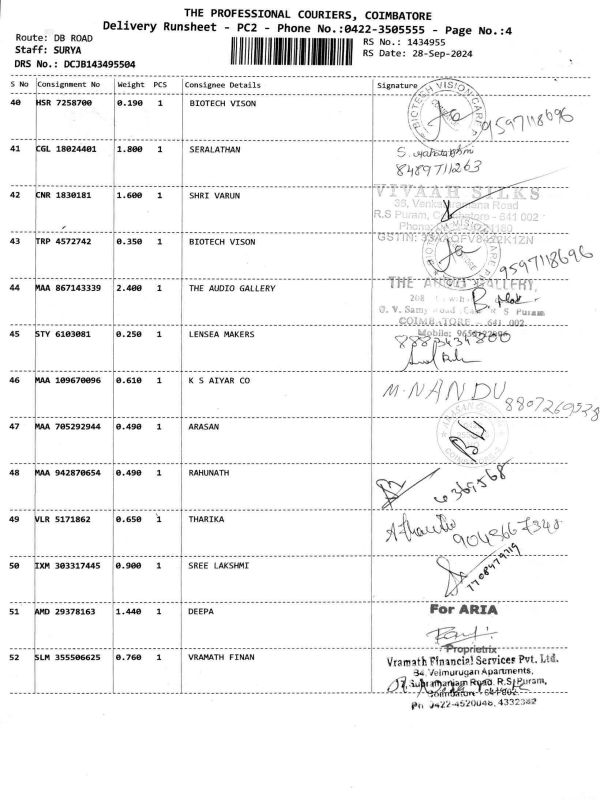 THE PROFESSIONAL COURIERS, COIMBATORE
Delivery Runsheet - PC2 - Phone No.:0422-3505555 - Page No.:4
Route: DB ROAD
RS No.: 1434955
Staff: SURYA
RS Date: 28-Sep-2024
DRS No.: DCJB143495504
S No Consignment No Weight PCS Consignee Details Signature
40 HSR 7258700 0.190 1 BIOTECH VISON
BIOTECH VISION CARE
9597118696
41 CGL 18024401 1.800 1 SERALATHAN
8489711263
42 CNR 1830181 1.600 1 SHRI VARUN
VIVAAH SILKS
R.S Puram, 641 002
43 TRP 4572742 0.350 1 BIOTECH VISON
9597118696
44 MAA 867143339 2.400 1 THE AUDIO GALLERY
THE AUDIO GALLERY,
208
R S Puram
COIMBATORE 641 002
Mobile:
45 STY 6103081 0.250 1 LENSEA MAKERS
46 MAA 109670096 0.610 1 K S AIYAR CO
M. NANDU
8807269528
47 MAA 705292944 0.490 1 ARASAN
ARASAN
48 MAA 942870654 0.490 1 RAHUNATH
49 VLR 5171862 0.650 1 THARIKA
50 IXM 303317445 0.900 1 SREE LAKSHMI
7708479719
51 AMD 29378163 1.440 1 DEEPA
For ARIA
Proprietrix
52 SLM 355506625 0.760 1 VRAMATH FINAN
Vramath Financial Services Pvt. Ltd.
84, Velmurugan Apartments,
Road, R.S. Puram,
Coimbatore - 641002.
Ph 0422-4520048, 4332342